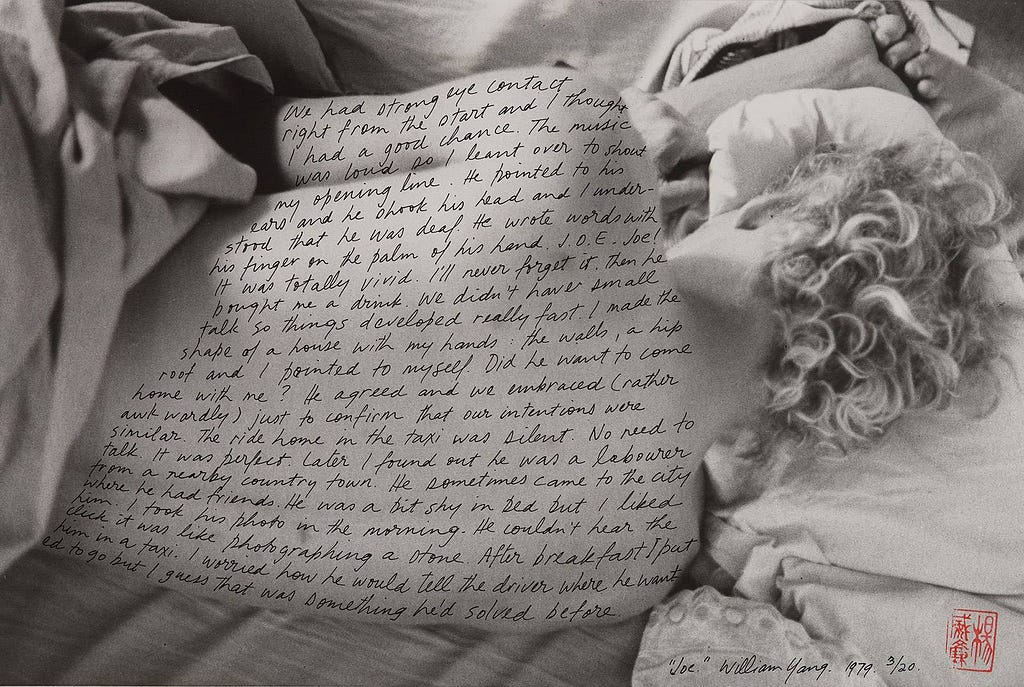 We had strong eye contact
right from the start and I thought
I had a good chance. The music
was loud so I leant over to shout
my opening line. He pointed to his
ears and he shook his head and I under-
stood that he was deaf. He wrote words with
his finger on the palm of his hand. J.O.E. Joe!
It was totally vivid. I'll never forget it. Then he
bought me a drink. We didn't have small
talk so things developed really fast. I made the
shape of a house with my hands: the walls, a hip
roof and I pointed to myself. Did he want to come
home with me? He agreed and we embraced (rather
awkwardly) just to confirm that our intentions were
similar. The ride home in the taxi was silent. No need to
talk. It was perfect. Later I found out he was a labourer
from a nearby country town. He sometimes came to the city
where he had friends. He was a bit shy in bed but I liked
him. I took his photo in the morning. He couldn't hear the
click it was like photographing a stone. After breakfast I put
him in a taxi. I worried how he would tell the driver where he want
ed to go but I guess that was something he'd solved before.
"Joe." William Yang. 1979. 3/20.
楊威廉